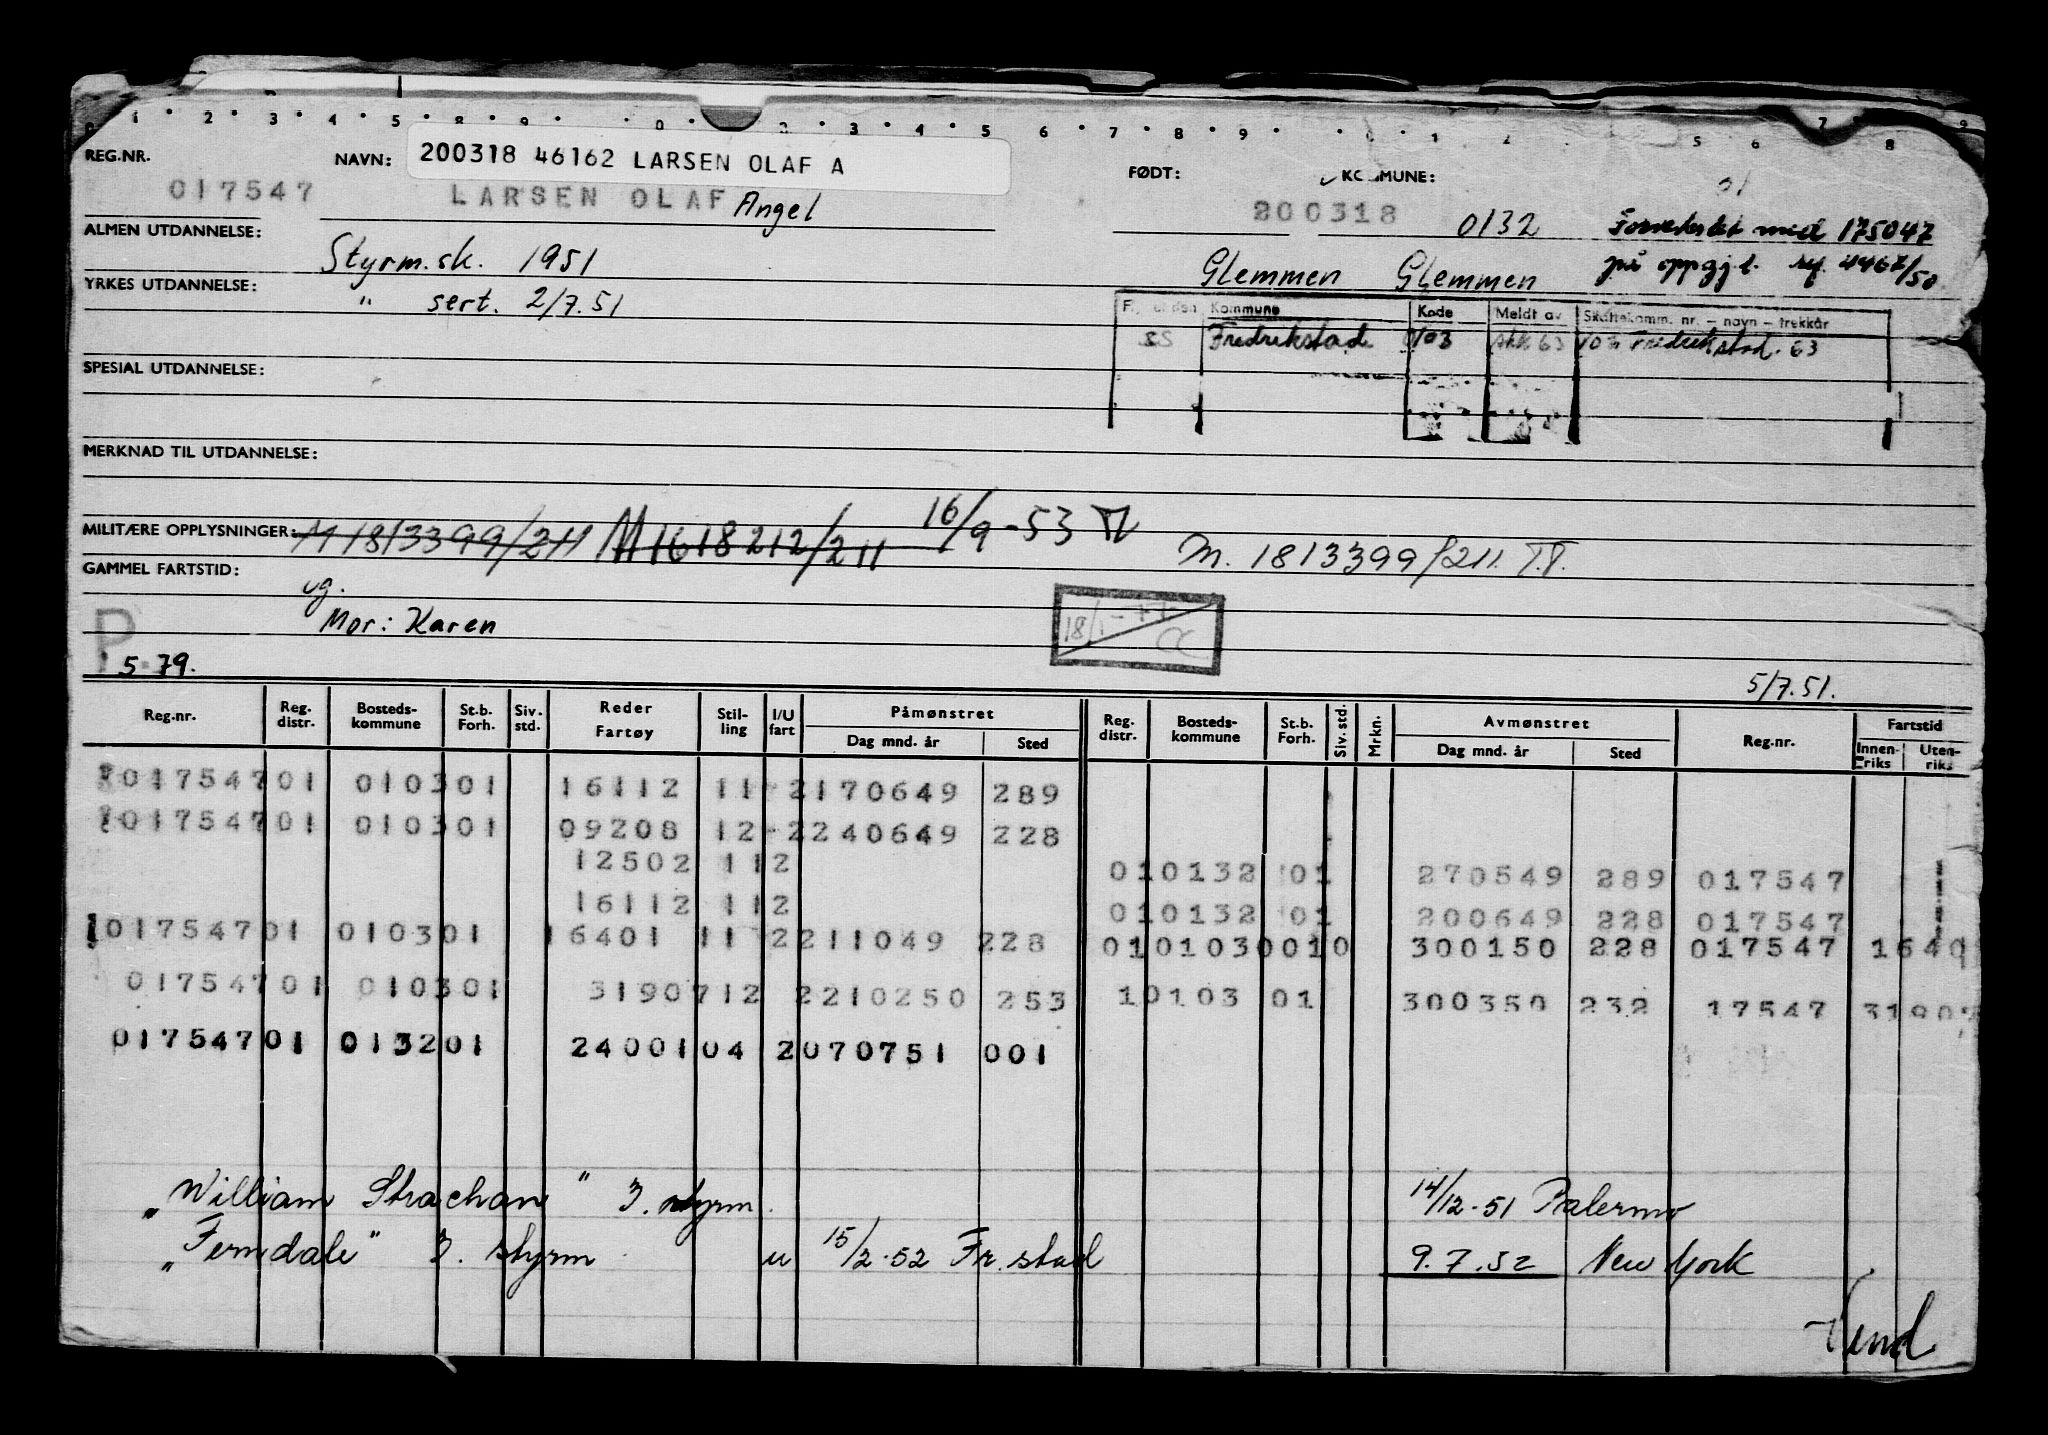 1 2 3 4 5 8 9 0 2 3 4 5 6 7 8 9 0 1 2 5 6 7 8 9
REG.NR. NAVN: 200318 46162 LARSEN OLAF A FØDT: KOMMUNE:
017547 LARSEN OLAF Angel 200318 0132 med 175047
ALMEN UTDANNELSE: Styrm.sk. 1951 Glemmen Glemmen på oppgj.l. 4467/50
YRKES UTDANNELSE: " sert. 2/7.51
Kommune Kode Meldt av Skattekomm. nr. – navn – trekkår
Fredrikstad 0103 63 Fredrikstad. 63
SPESIAL UTDANNELSE:
MERKNAD TIL UTDANNELSE:
MILITÆRE OPPLYSNINGER: M 1813399/211 M 1618212/211 16/9-53 M. 1813399/211. T.T.
GAMMEL FARTSTID:
ug.
Mor: Karen 18/1-77
P
5.79. 5/7.51.
Reg.nr. Reg. distr. Bosteds-kommune St.b. Forh. Siv. std. Reder Fartøy Stil-ling I/U fart Påmønstret Dag mnd. år Sted Reg. distr. Bosteds-kommune St.b. Forh. Siv. std. Mrkn. Avmønstret Dag mnd. år Sted Reg.nr. Fartstid Innen-riks Uten-riks
01754701 010301 16112 11 2170649 289
01754701 010301 09208 12-2240649 228
12502 112 010132 01 270549 289 017547
16112 112 010132 01 200649 228 017547
01754701 010301 16401 11 2211049 228 0101030010 300150 228 017547 1640
01754701 010301 3190712 2210250 253 10103 01 300350 232 17547 3190
01754701 013201 2400104 2070751 001
„William Strachan" 3. styrm. 14/12-51 Palermo
„Ferndale" 3. styrm u 15/2-52 Fr.stad 9.7.52 New York
Vend